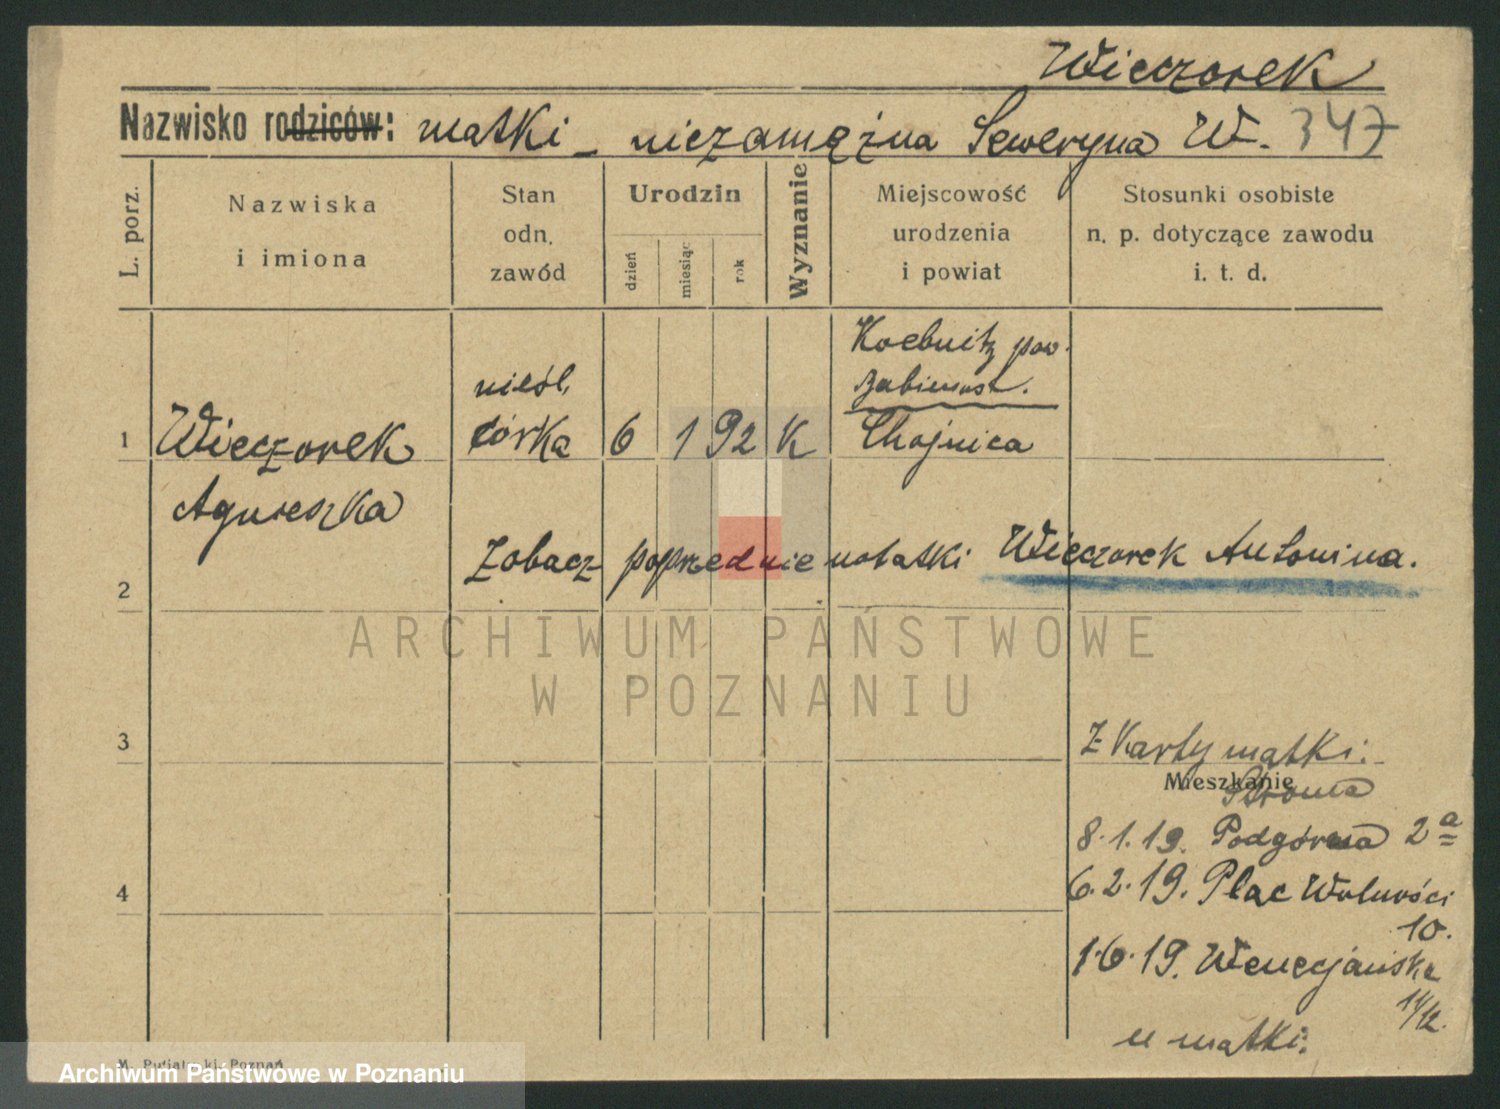 Wieczorek
Nazwisko rodziców: matki - niezamężna Seweryna W. 347
L. porz.
Nazwiska
i imiona
Stan
odn.
zawód
Urodzin
dzień
miesiąc
rok
Wyznanie
Miejscowość
urodzenia
i powiat
Stosunki osobiste
n. p. dotyczące zawodu
i. t. d.
1
Wieczorek
Agnieszka
nieśl.
córka
6 1 92 K
Koebnitz pow.
Chojnica
2
Zobacz poprzednie notatki Wieczorek Antonina.
ARCHIWUM PAŃSTWOWE
W POZNANIU
3
Z Karty matki:
Mieszkanie
8.1.19. Podgórna 2a
4
6.2.19. Plac Wolności
10.
1.6.19. Wenecjańska
11/12.
u matki.
Poznań
Archiwum Państwowe w Poznaniu